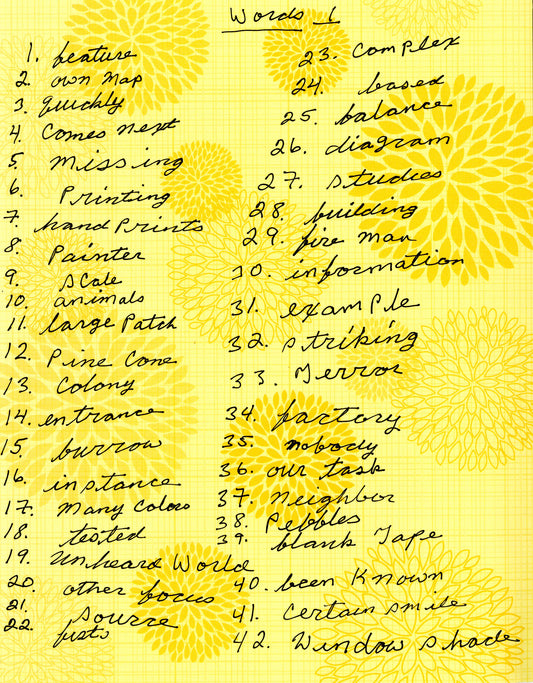 Words 1
1. feature
2. own map
3. quickly
4. Comes next
5. missing
6. Printing
7. hand Prints
8. Painter
9. scale
10. animals
11. large Patch
12. Pine Cone
13. Colony
14. entrance
15. burrow
16. instance
17. Many Colors
18. tested
19. Unheard World
20. other focus
21. source
22. fists
23. Complex
24. based
25. balance
26. diagram
27. studies
28. building
29. fire man
30. information
31. example
32. striking
33. Terror
34. factory
35. nobody
36. our task
37. Neighbor
38. Pebbles
39. blank Tape
40. been Known
41. Certain smile
42. Window shade